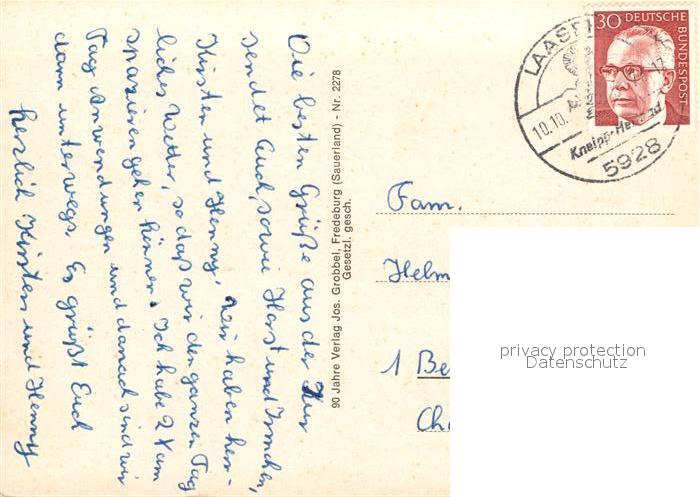 Die besten Grüße aus der Kur
sendet Euch, sowie Horst und Irmchen,
Kirsten und Henny. Wir haben herr-
liches Wetter, so daß wir den ganzen Tag
spazieren gehen können. Ich habe 2 x am
Tag Anwendungen und danach sind wir
dann unterwegs. Es grüßt Euch
herzlich Kirsten und Henny
90 Jahre Verlag Jos. Grobbel, Fredeburg (Sauerland) - Nr. 2278
Gesetzl. gesch.
30 DEUTSCHE
BUNDESPOST
LAASPH
10.10.
Kneipp-Heilbad
5928
Fam.
Helm
1 Be
Ch
privacy protection
Datenschutz